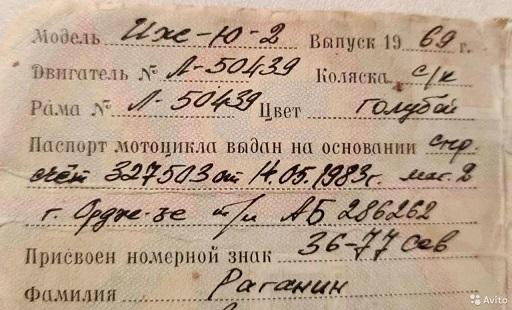 Модель Иж-Ю-2 Выпуск 1969 г.
Двигатель № Л-50439 Коляска с/к
Рама № Л-50439 Цвет голубой
Паспорт мотоцикла выдан на основании спр.
счёт 327503 от 14.05.1983г. маг. 2
г. Ордж-зе т/п АБ 286262
Присвоен номерной знак 36-77 сев
Фамилия Раганин
Avito